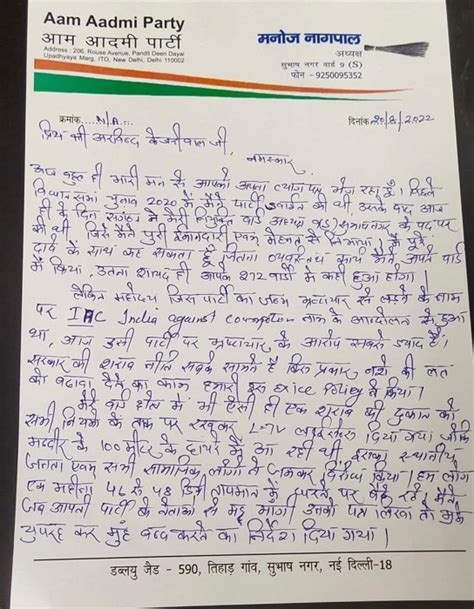 Aam Aadmi Party
आम आदमी पार्टी
Address : 206, Rouse Avenue, Pandit Deen Dayal
Upadhyaya Marg, ITO, New Delhi, Delhi 110002
मनोज नागपाल
अध्यक्ष
सुभाष नगर वार्ड 9 (S)
फोन - 9250095352
क्रमांक....N/A...
दिनांक 20/8/2022
प्रिय श्री अरविन्द केजरीवाल जी,
नमस्कार
आज बहुत ही भारी मन से आपको अपना त्याग पत्र भेज रहा हूँ। पिछले
विधानसभा चुनाव 2020 में मैंने पार्टी ज्वाइन की थी, उसके बाद आज
ही के दिन संगठन ने मेरी नियुक्ति वार्ड अध्यक्ष सुभाष नगर के पद पर
की थी, जिसे मैंने पूरी ईमानदारी एवम मेहनत से निभाया। मैं पूरे
दावे के साथ कह सकता हूँ जितना व्यवस्थित कार्य मैंने अपने वार्ड
में किया, उतना शायद ही आपके 272 वार्डो में कही हुआ होगा।
लेकिन महोदय जिस पार्टी का जन्म भ्रष्टाचार से लड़ने के नाम
पर IAC India against corruption नाम के आन्दोलन से हुआ
था, आज उसी पार्टी पर भ्रष्टाचार के आरोप सबसे ज्यादा है।
सरकार की शराब नीति सबके सामने है किस प्रकार नशे की लत
को बढावा देने का काम हमारी इस Policy ने किया।
मेरे वार्ड क्षेत्र में भी ऐसी ही एक शराब की दुकान को
सभी नियमों के ताक पर रखकर L-7V दिया गया जोकि
मन्दिर के 100 मीटर के दायरे में आ रही थी इसका स्थानीय
जनता एवम सभी सामाजिक लोगों ने जमकर विरोध किया। हम लोग
एक महीना 46 से 48 डिग्री तापमान में धरने पर बैठे रहे मैंने
जब आपकी पार्टी के नेताओं से मदद मांगी उनको पत्र लिखा तो मुझे
चुपरह कर मुँह बन्द करने का निर्देश दिया गया।
डब्लयु जैड - 590, तिहाड़ गांव, सुभाष नगर, नई दिल्ली-18